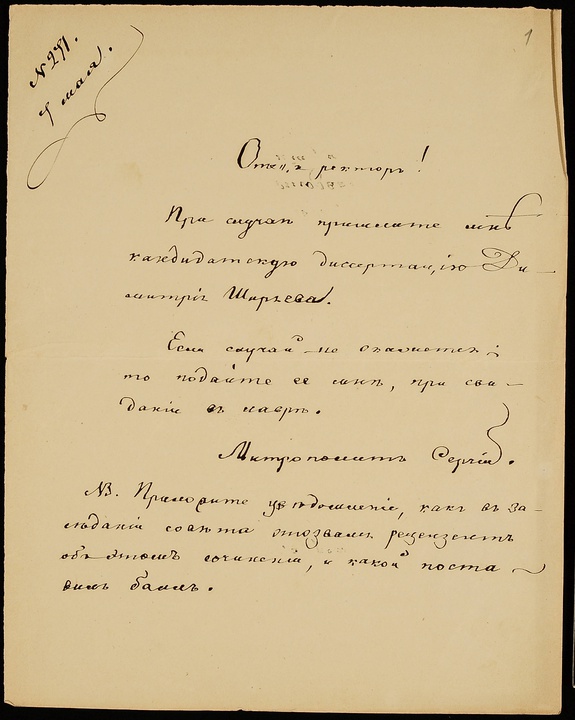 № 271.
9 мая.
1
Отецъ ректоръ!
При случаѣ пришлите мнѣ
кандидатскую диссертацію Ди-
митрія Ширяева.
Если случай не окажется;
то подайте ее мнѣ, при сви-
даніи въ лаврѣ.
Митрополитъ Сергій.
NB. Приложите увѣдомленіе, какъ въ за-
сѣданіи совѣта отозвался рецензентъ
объ этомъ сочиненіи, и какой поста
вилъ баллъ.